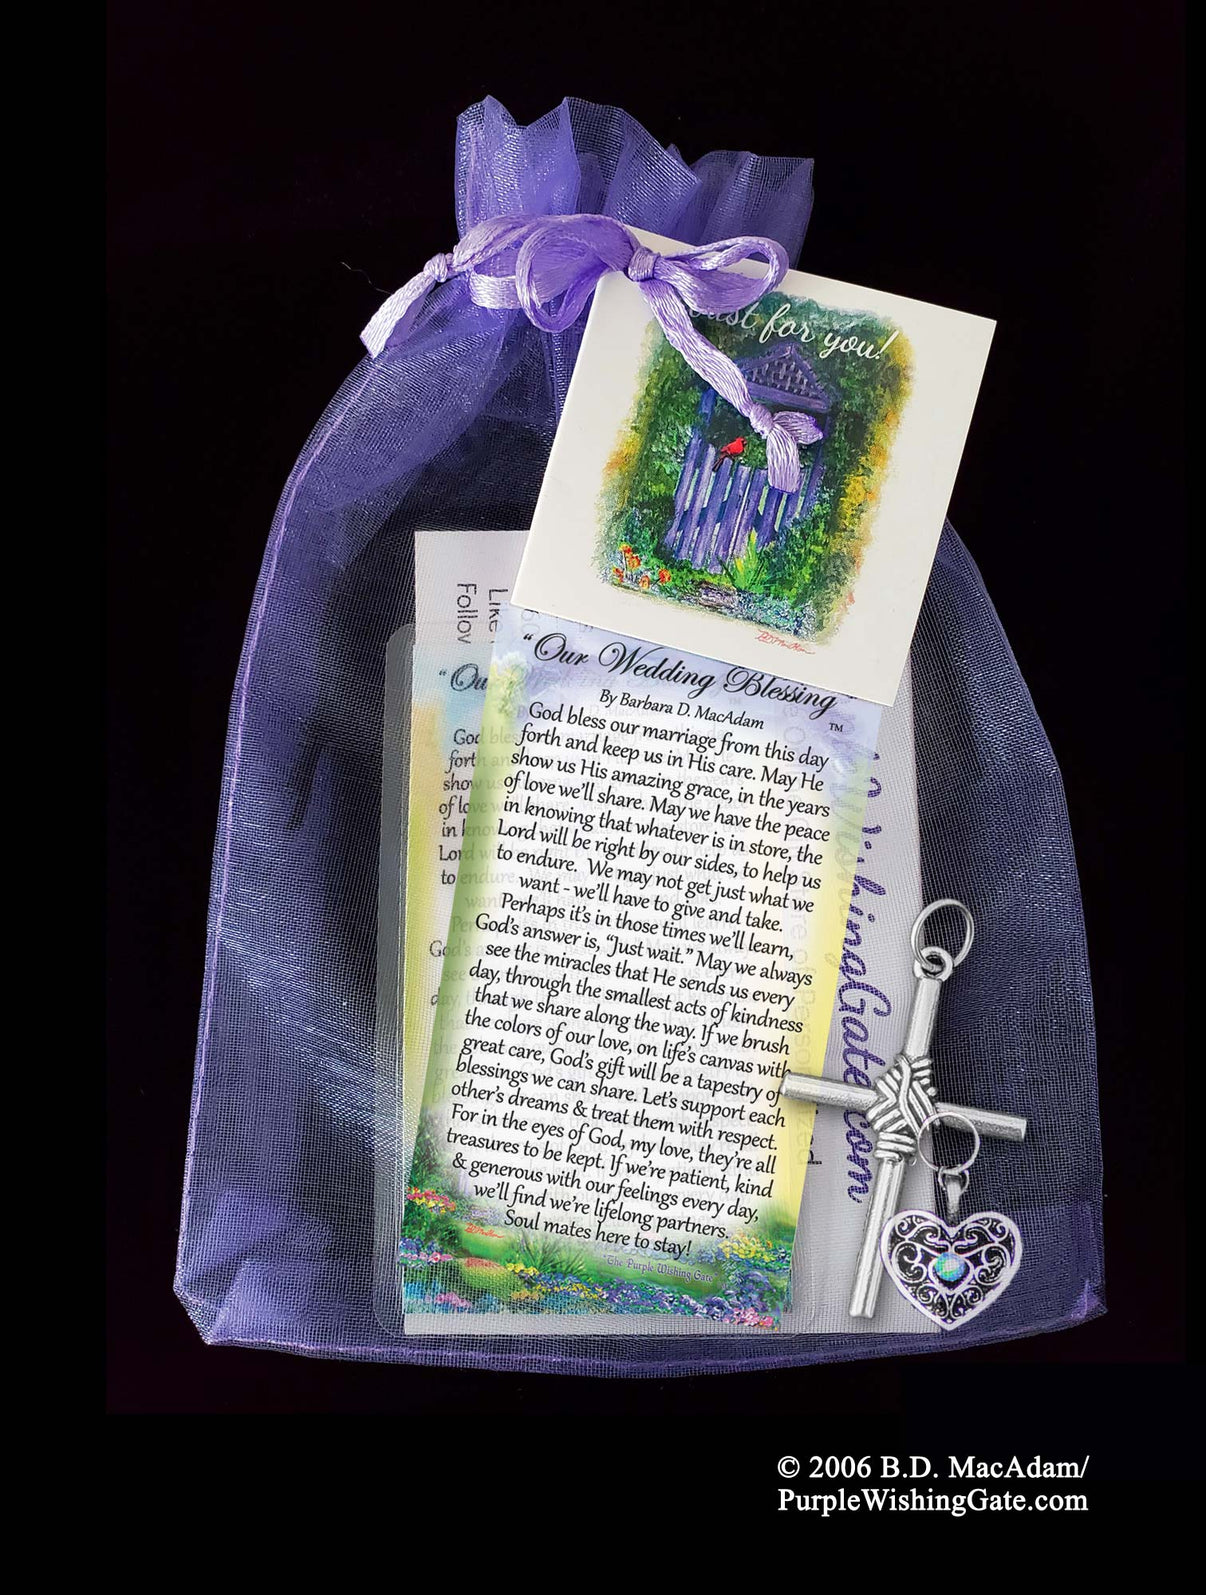 Just for you!
Like
Follow
"Our Wedding Blessing"
By Barbara D. MacAdam
™
God bless our marriage from this day
forth and keep us in His care. May He
show us His amazing grace, in the years
of love we'll share. May we have the peace
in knowing that whatever is in store, the
Lord will be right by our sides, to help us
to endure. We may not get just what we
want - we'll have to give and take.
Perhaps it's in those times we'll learn,
God's answer is, "Just wait." May we always
see the miracles that He sends us every
day, through the smallest acts of kindness
that we share along the way. If we brush
the colors of our love, on life's canvas with
great care, God's gift will be a tapestry of
blessings we can share. Let's support each
other's dreams & treat them with respect.
For in the eyes of God, my love, they're all
treasures to be kept. If we're patient, kind
& generous with our feelings every day,
we'll find we're lifelong partners.
Soul mates here to stay!
The Purple Wishing Gate
WishingGate.com
© 2006 B.D. MacAdam/
PurpleWishingGate.com